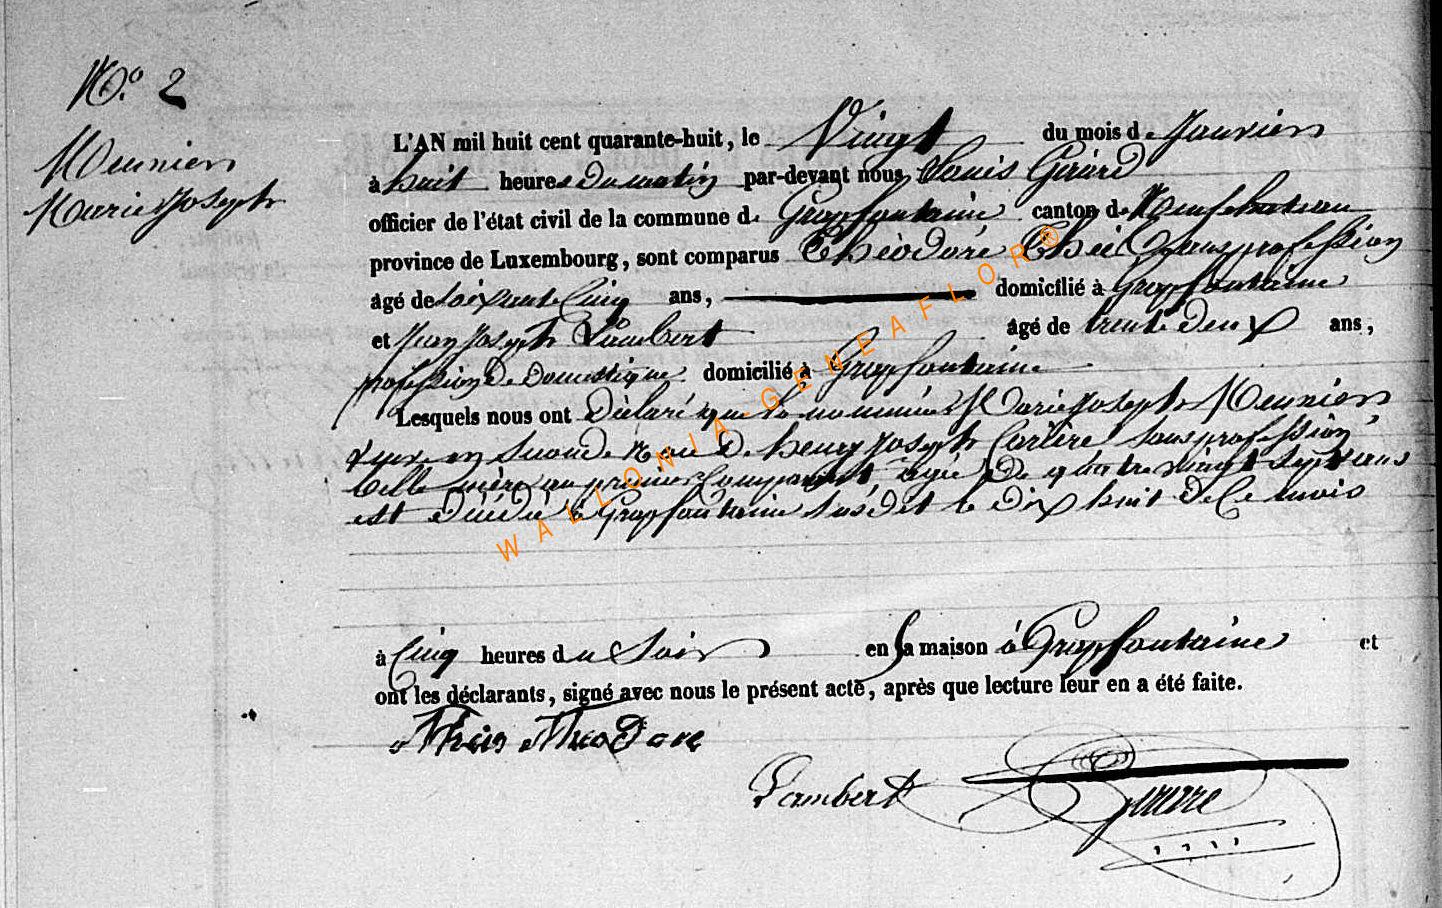 N.o 2
Meunier
Marie Joseph
L'AN mil huit cent quarante-huit, le Vingt du mois de Janvier
à huit heures du matin par-devant nous Louis
officier de l'état civil de la commune de Grapfontaine canton de Neufchateau
province de Luxembourg, sont comparus Théodore sans profession
âgé de soixante Cinq ans, domicilié à Grapfontaine
et Jean Joseph Lambert âgé de trente deux ans,
profession de Domestique domicilié à Grapfontaine
Lesquels nous ont Déclaré que la nommée Marie Joseph Meunier
de henry Joseph sans profession
belle mère au premier Comparant, agée De quatre vingt sept ans
est Décédé à Grapfontaine susdit le Dix huit De Ce mois
à Cinq heures du Soir en Sa maison à Grapfontaine et
ont les déclarants, signé avec nous le présent acte, après que lecture leur en a été faite.
Lambert
WALLONIA-GENEAFLOR®